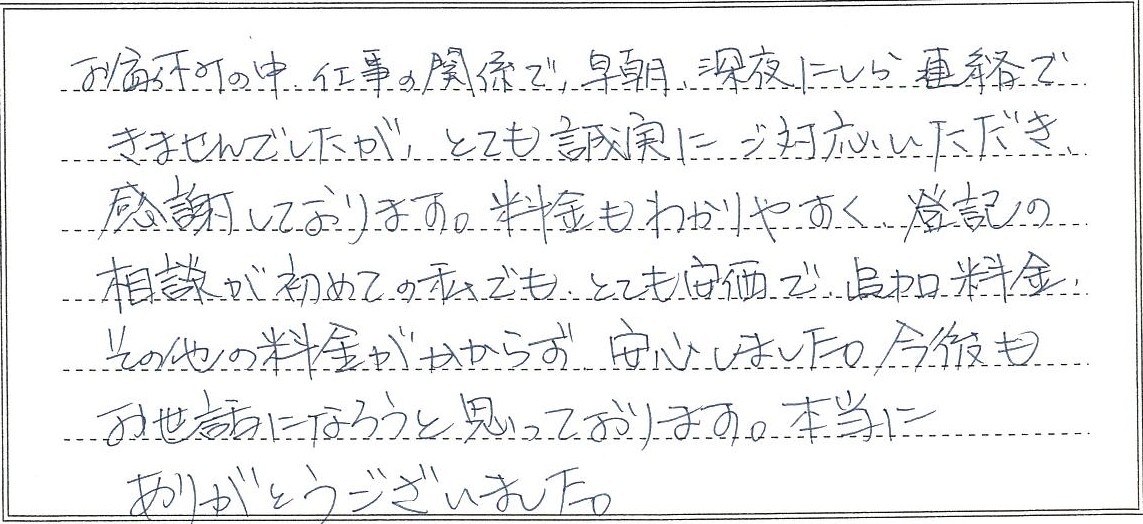 の中、仕事の関係で、早朝、深夜にしか連絡で
きませんでしたが、とても誠実にご対応いただき、
感謝しております。料金もわかりやすく、登記の
相談が初めての私でも、とても安価で、追加料金、
その他の料金がかからず 安心しました。今後も
お世話になろうと思っております。本当に
ありがとうございました。